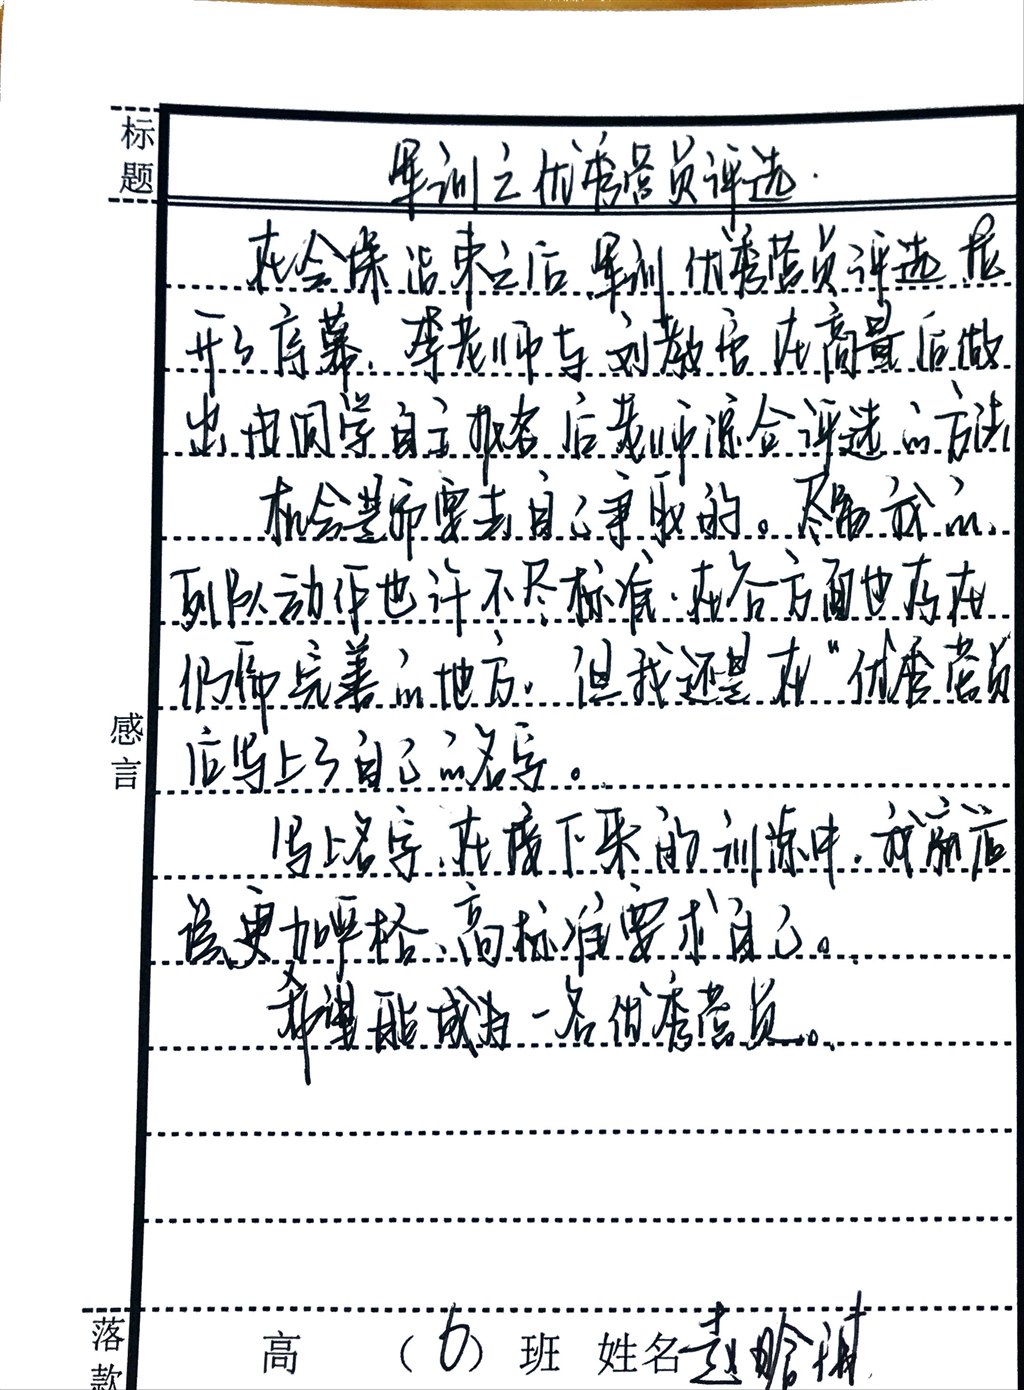 标题
军训之优秀营员评选.
在会操结束之后 军训优秀营员评选拉
开了序幕、李老师与刘教官在商量后做
出由同学自主报名后老师综合评选的方法
机会是需要去自己争取的。尽管我的
列队动作也许不尽标准.在各方面也存在
仍需完善的地方.但我还是在“优秀营员
后写上了自己的名字。
写上名字、在接下来的训练中.我就应
该更加严格、高标准要求自己。
希望能成为一名优秀营员。
感言
落款
高 (6) 班 姓名 赵晗